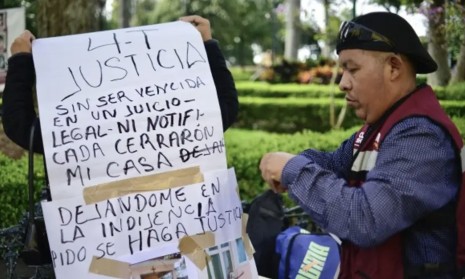 4-T
JUSTICIA
SIN SER VENCIDA
EN UN JUICIO-
LEGAL-NI NOTIFI-
CADA CERRARÓN
MI CASA DEJAN
DEJANDOME EN
LA INDIJENCIA
PIDO SE HAGA JUSTICIA